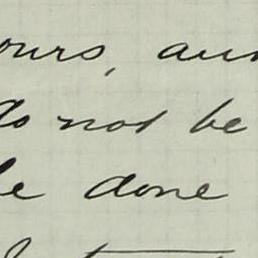 ours, and
do not be
be done